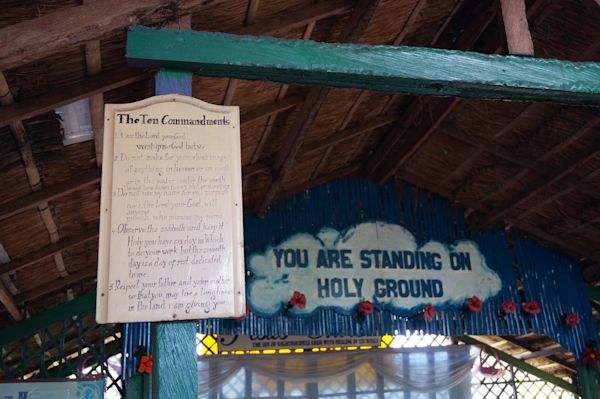 The Ten Commandments
1. I am the Lord your God
worship no God but me.
2. Do not make for yourselves images
of anything in heaven or on earth
or in the water under the earth
3. Do not use my name for evil purposes
for I the lord your God will
punish who misuse my name
4. Observe the sabbath and keep it
Holy you have six day in which
to do your work but the seventh
day is a day of rest dedicated
to me.
5. Respect your father and your mother
so that you may live a long time
in the land I am giving you.
YOU ARE STANDING ON
HOLY GROUND
THE SUN OF RIGHTEOUSNESS WITH HEALING IN